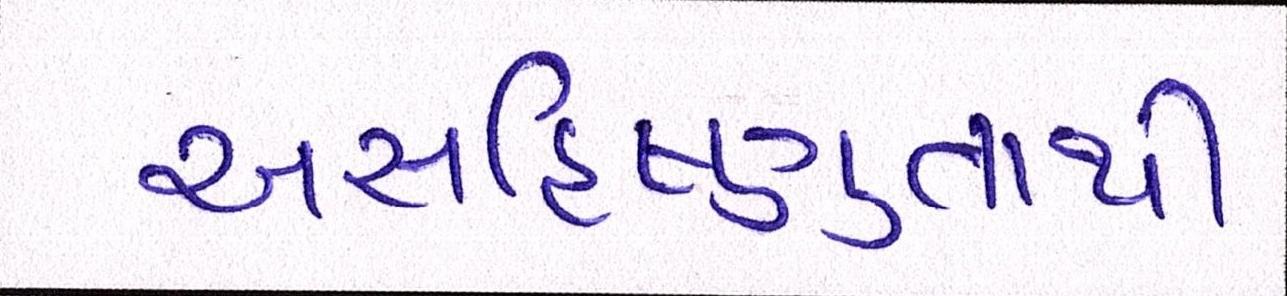 અસહિષ્ણુતાથી